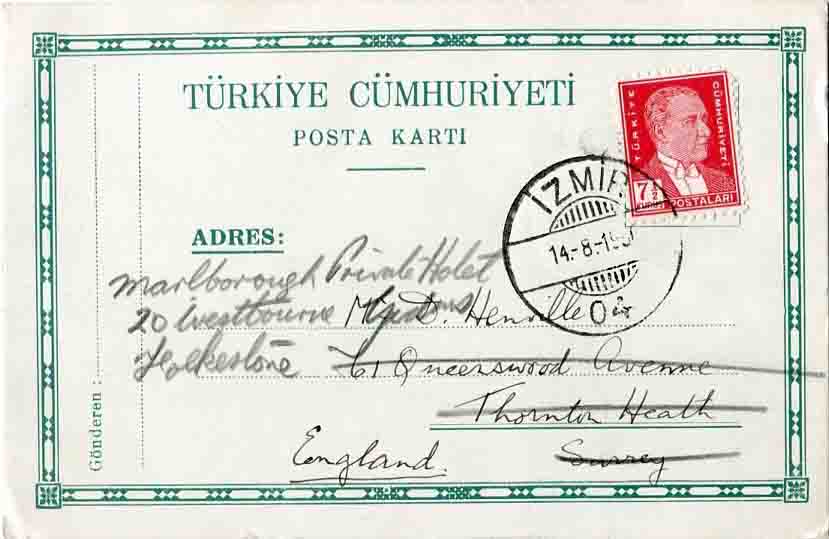 TÜRKİYE CÜMHURİYETİ
POSTA KARTI
TÜRKİYE
CÜMHURİYETİ
7½
KURUŞ
POSTALARI
İZMİR
14.-8-193
ADRES:
Marlborough Private Hotel
20 Westbourne Gardens
Folkestone
D. Henville
61 Queenswood Avenue
Thornton Heath
Surrey
England.
Gönderen :